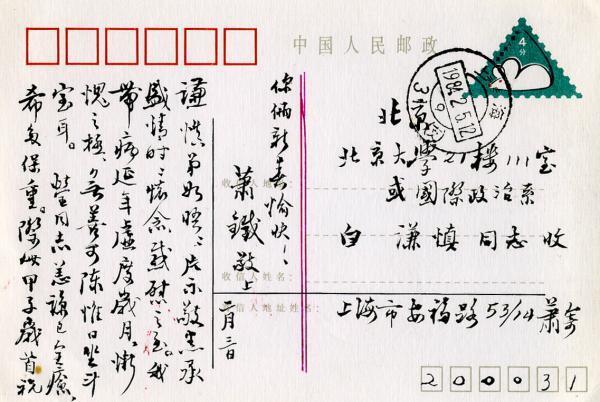 中国人民邮政
4分
上海
1984.2.5.12
北京
北京大學27楼111室
或國際政治系
白謙慎同志收
收信人地址:
收信人姓名:
寄信人地址姓名:
上海市安福路53/14蕭寄
200031
謙慎弟如晤:片示敬悉承
盛情時時懷念感慰之至。我
帶病延年虚度歲月,慚
愧之極,無善可陳惟日坐斗
室耳。同志恙諒已全癒,
希多保重。際此甲子歲首祝
你倆新春愉快!
蕭鐵敬上
二月三日